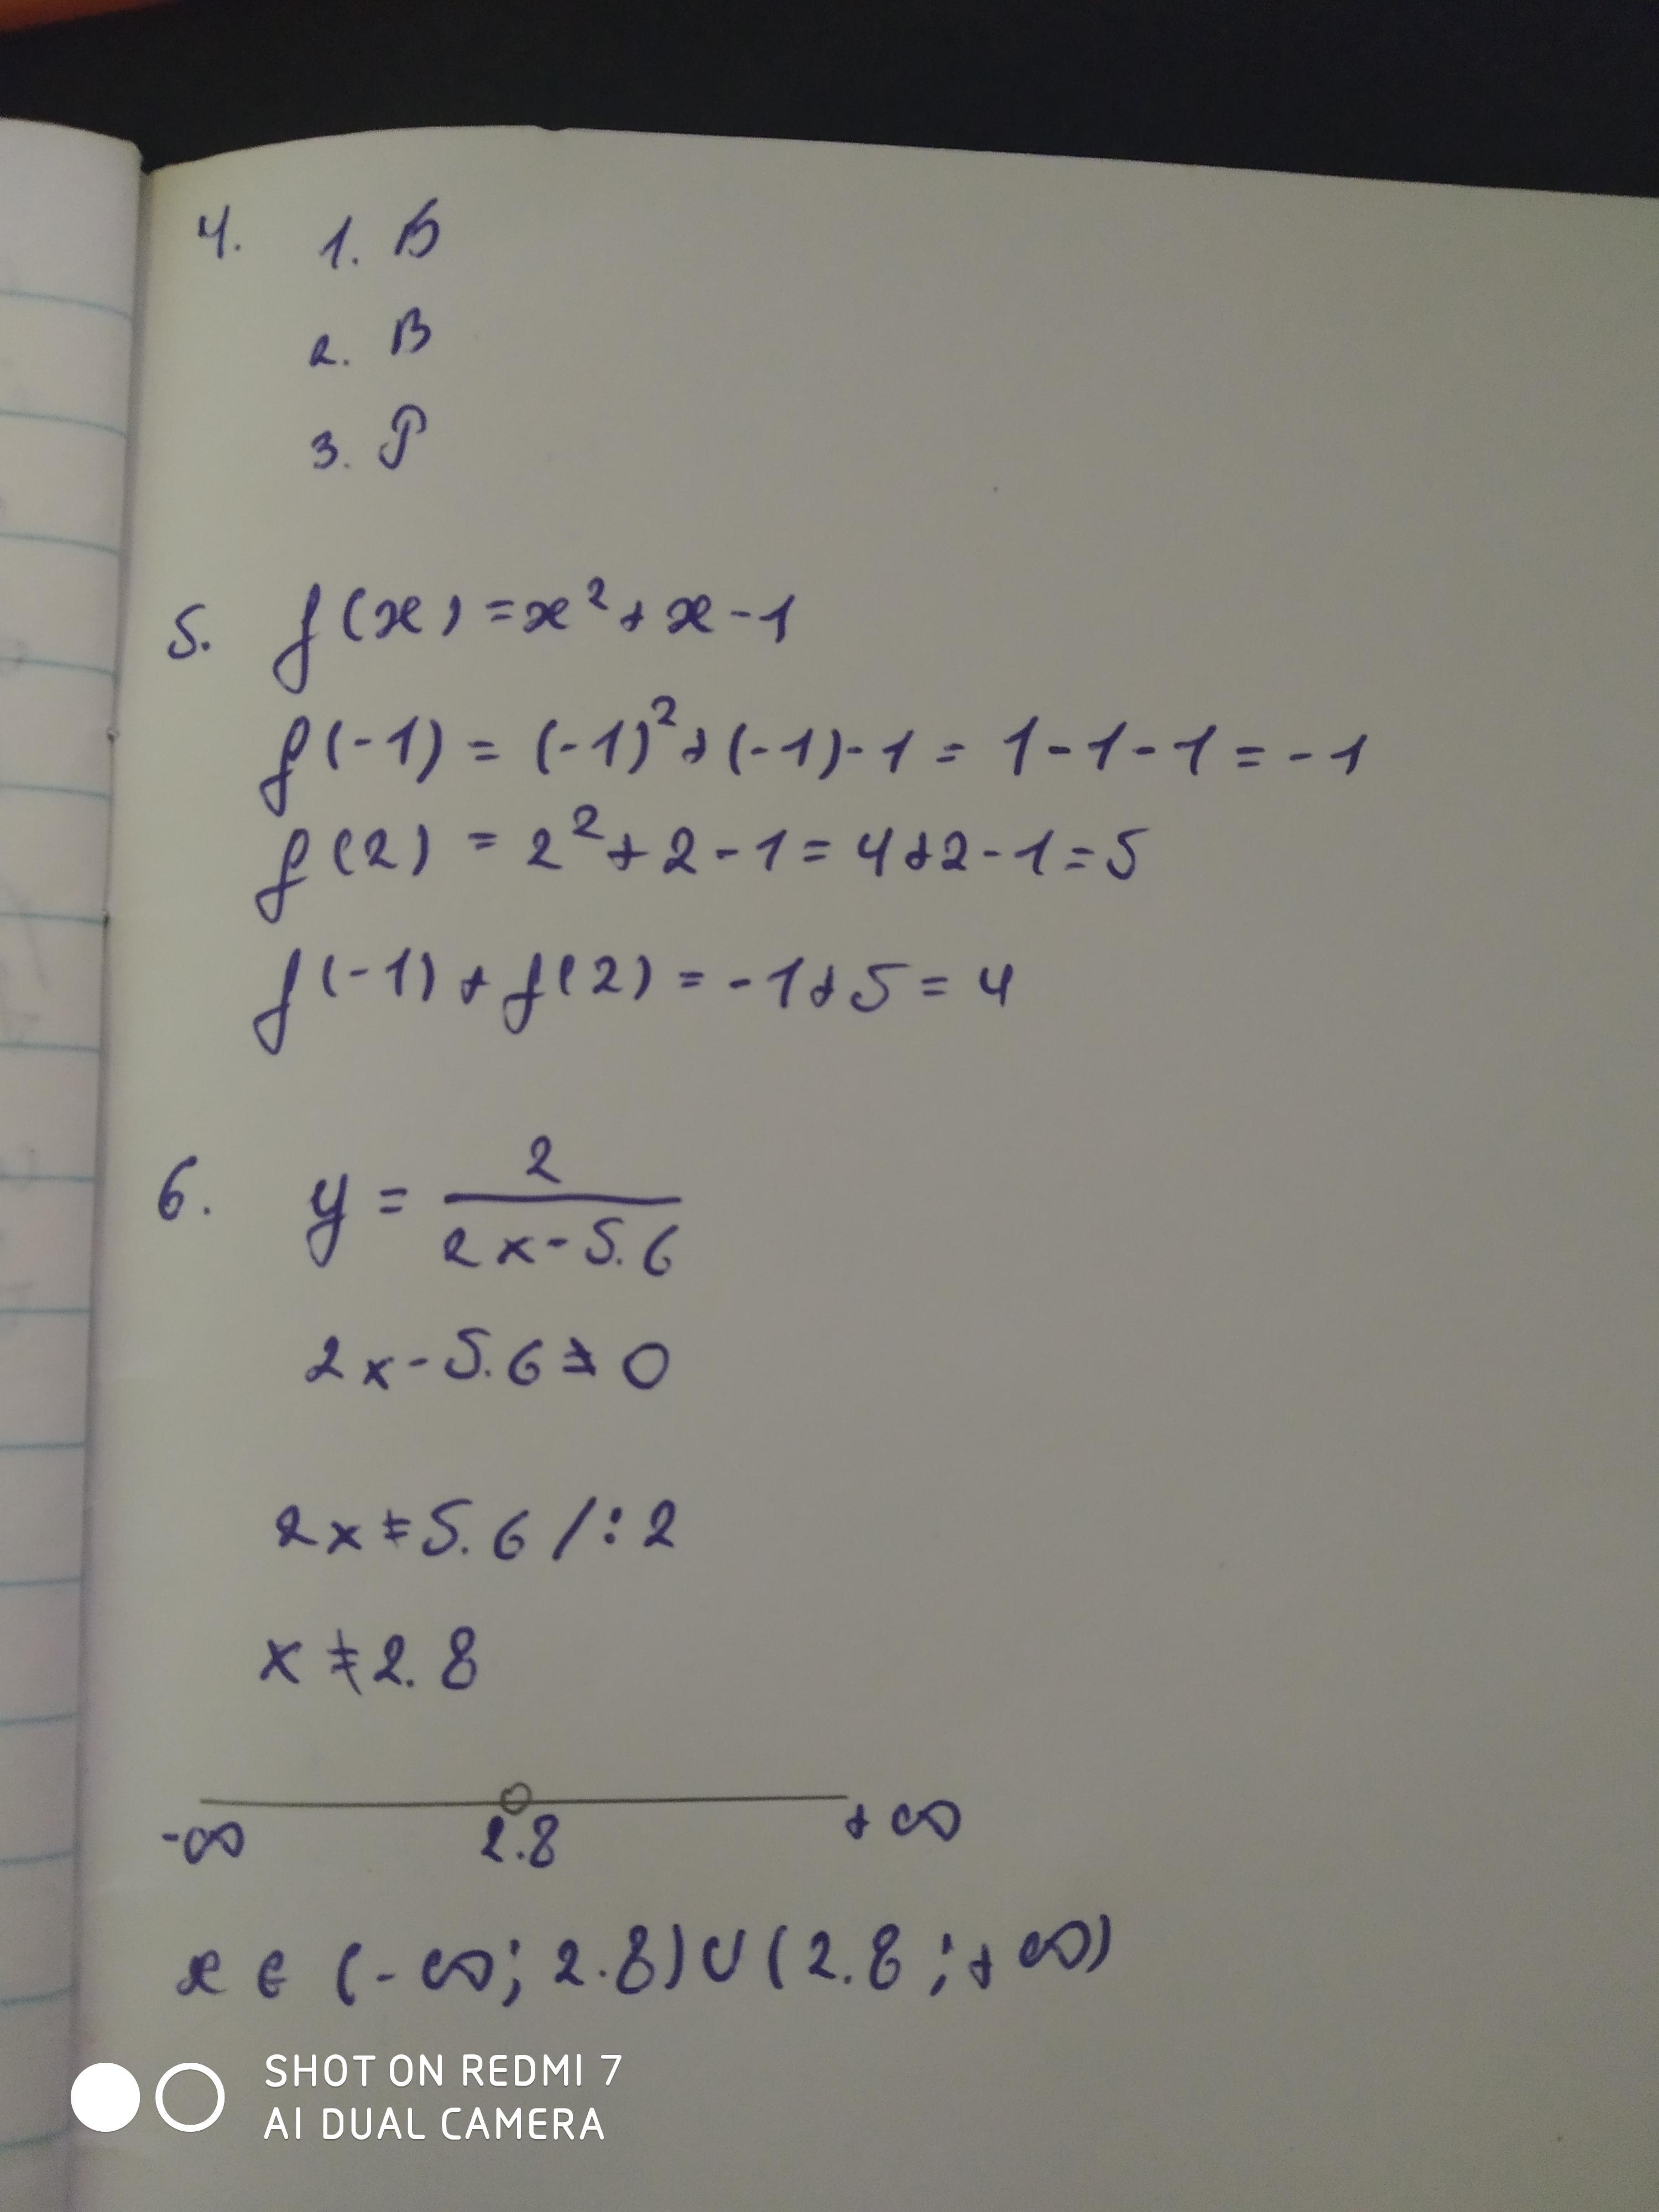 4. 1. Б
2. В
3. Г
5. f(x) = x² + x - 1
f(-1) = (-1)² + (-1) - 1 = 1 - 1 - 1 = -1
f(2) = 2² + 2 - 1 = 4 + 2 - 1 = 5
f(-1) + f(2) = -1 + 5 = 4
6. y = 2/(2x - 5.6)
2x - 5.6 ≠ 0
2x ≠ 5.6 / : 2
x ≠ 2.8
-∞ 2.8 +∞
x ∈ (-∞; 2.8) ∪ (2.8; +∞)
SHOT ON REDMI 7
AI DUAL CAMERA